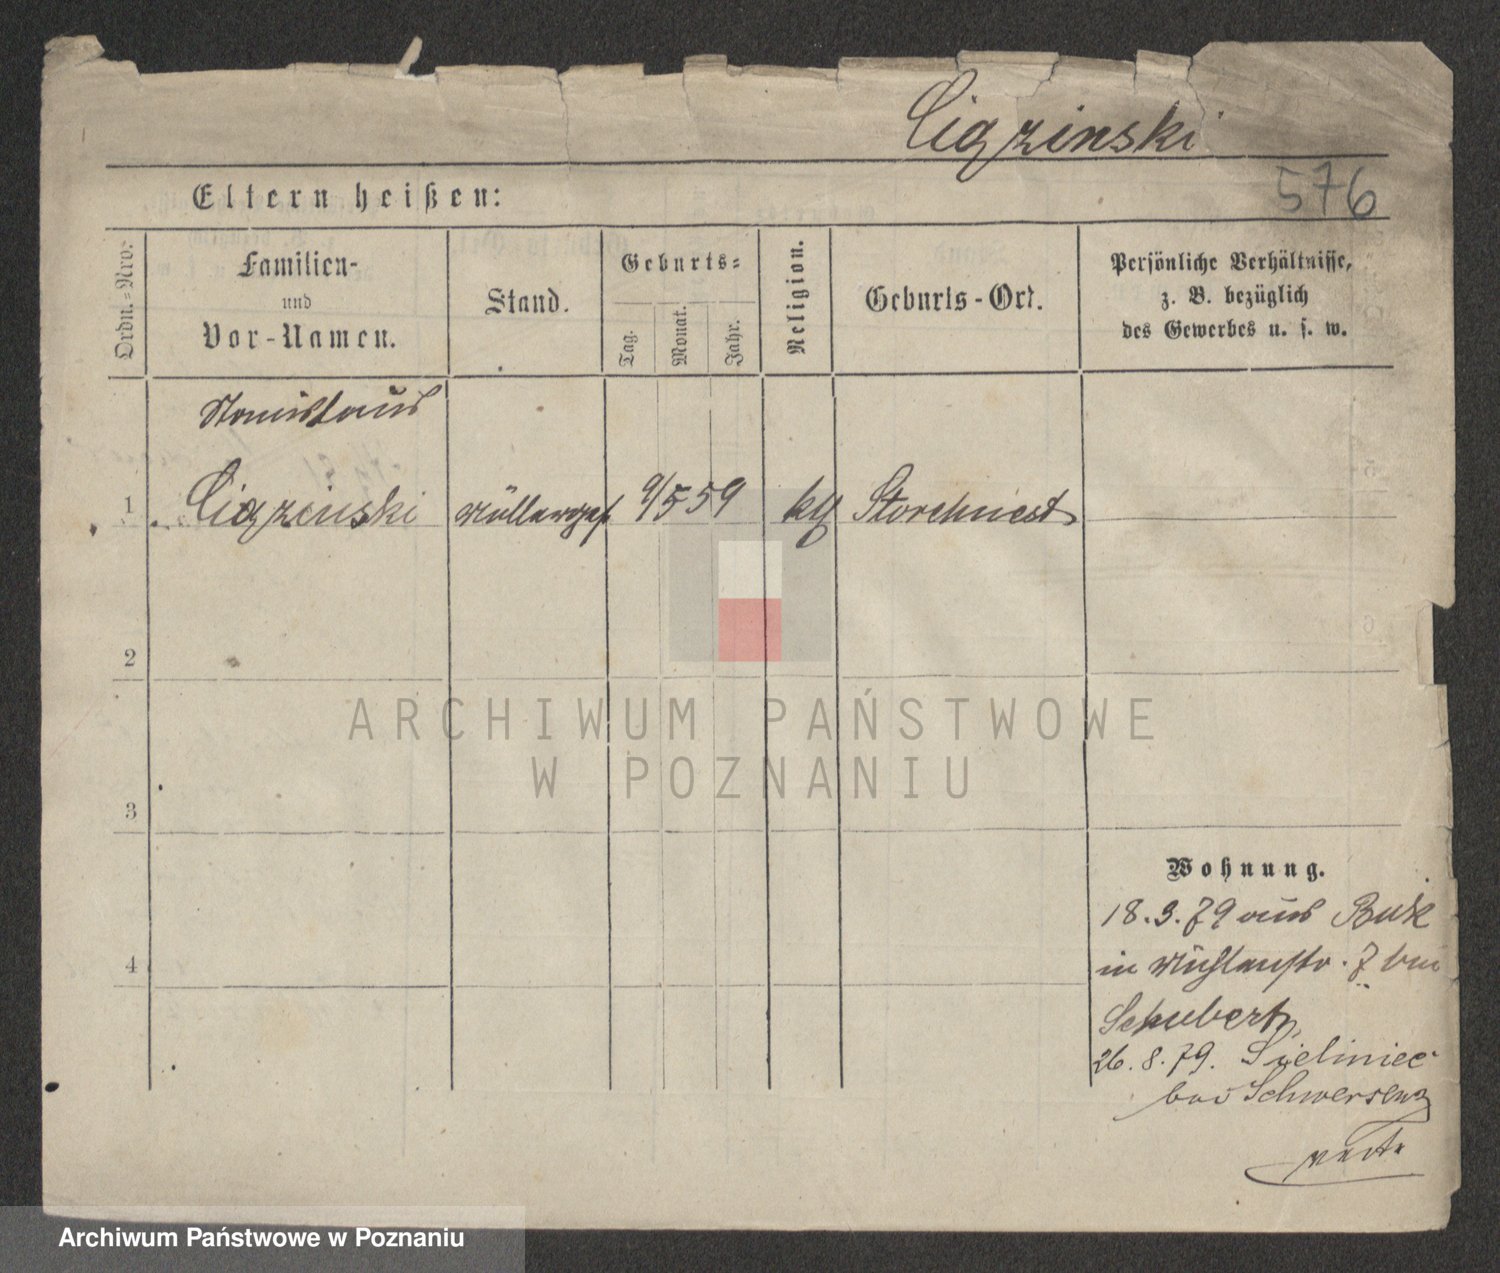 Cigzinski
576
Eltern heißen:
Ordn.=Nro.
Familien-
und
Vor-Namen.
Stand.
Geburts=
Tag.
Monat.
Jahr.
Religion.
Geburts-Ort.
Persönliche Verhältnisse,
z. B. bezüglich
des Gewerbes u. s. w.
Stanislaus
1 Cigzinski Müllerges 9/5 59 kth Storchnest
2
3
4
Wohnung.
18.3.79 aus Buk
in Mühlenstr. 7 bei
Schubert,
26.8.79. Sieliniec
bei Schwersenz
verte
ARCHIWUM PAŃSTWOWE
W POZNANIU
Archiwum Państwowe w Poznaniu